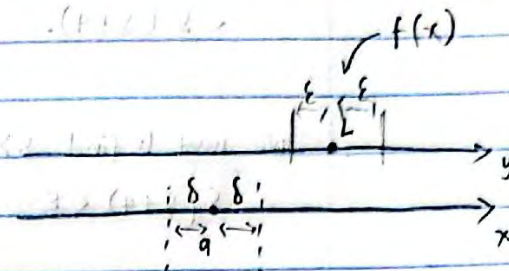 f(x)
ε ε
L
y
δ δ
a
x